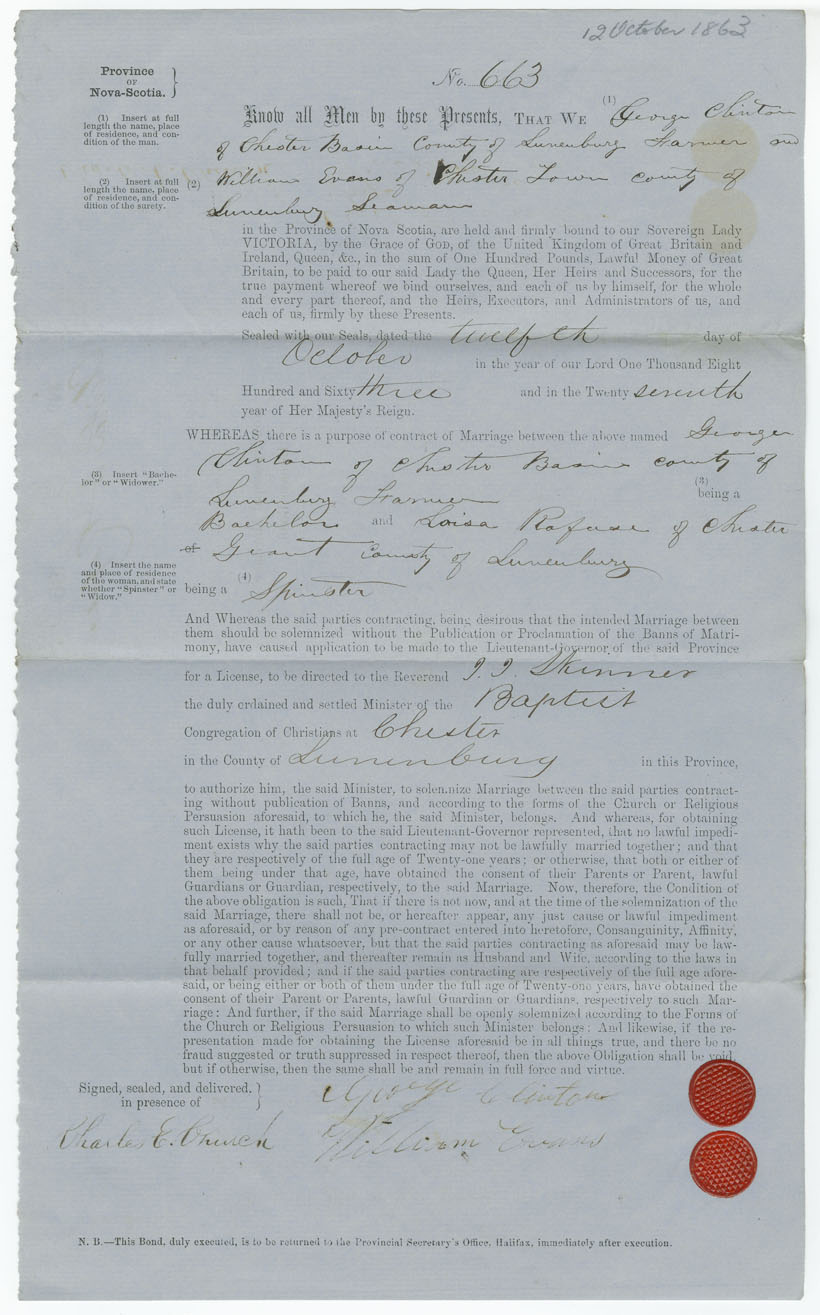 12 October 1863
Province
OF
Nova-Scotia.
No. 663
(1) Insert at full
length the name, place
of residence, and con-
dition of the man.
Know all Men by these Presents, THAT WE (1) George Clinton
of Chester Basin County of Lunenburg Farmer and
(2) Insert at full
length the name, place
of residence, and con-
dition of the surety.
(2) William Evans of Chester Town County of
Lunenburg Seaman
in the Province of Nova Scotia, are held and firmly bound to our Sovereign Lady
VICTORIA, by the Grace of GOD, of the United Kingdom of Great Britain and
Ireland, Queen, &c., in the sum of One Hundred Pounds, Lawful Money of Great
Britain, to be paid to our said Lady the Queen, Her Heirs and Successors, for the
true payment whereof we bind ourselves, and each of us by himself, for the whole
and every part thereof, and the Heirs, Executors, and Administrators of us, and
each of us, firmly by these Presents.
Sealed with our Seals, dated the twelfth day of
October in the year of our Lord One Thousand Eight
Hundred and Sixty three and in the Twenty seventh
year of Her Majesty's Reign.
WHEREAS there is a purpose of contract of Marriage between the above named George
Clinton of Chester Basin County of
(3) Insert "Bache-
lor" or "Widower."
Lunenburg Farmer (3) being a
Bachelor and Loisa Rafuse of Chester
of Grant County of Lunenburg
(4) Insert the name
and place of residence
of the woman, and state
whether "Spinster" or
"Widow."
being a (4) Spinster
And Whereas the said parties contracting, being desirous that the intended Marriage between
them should be solemnized without the Publication or Proclamation of the Banns of Matri-
mony, have caused application to be made to the Lieutenant-Governor of the said Province
for a License, to be directed to the Reverend I. J. Skinner
the duly ordained and settled Minister of the Baptist
Congregation of Christians at Chester
in the County of Lunenburg in this Province,
to authorize him, the said Minister, to solemnize Marriage between the said parties contract-
ing without publication of Banns, and according to the forms of the Church or Religious
Persuasion aforesaid, to which he, the said Minister, belongs. And whereas, for obtaining
such License, it hath been to the said Lieutenant-Governor represented, that no lawful impedi-
ment exists why the said parties contracting may not be lawfully married together; and that
they are respectively of the full age of Twenty-one years; or otherwise, that both or either of
them being under that age, have obtained the consent of their Parents or Parent, lawful
Guardians or Guardian, respectively, to the said Marriage. Now, therefore, the Condition of
the above obligation is such, That if there is not now, and at the time of the solemnization of the
said Marriage, there shall not be, or hereafter appear, any just cause or lawful impediment
as aforesaid, or by reason of any pre-contract entered into heretofore, Consanguinity, Affinity,
or any other cause whatsoever, but that the said parties contracting as aforesaid may be law-
fully married together, and thereafter remain as Husband and Wife, according to the laws in
that behalf provided; and if the said parties contracting are respectively of the full age afore-
said, or being either or both of them under the full age of Twenty-one years, have obtained the
consent of their Parent or Parents, lawful Guardian or Guardians, respectively to such Mar-
riage: And further, if the said Marriage shall be openly solemnized according to the Forms of
the Church or Religious Persuasion to which such Minister belongs: And likewise, if the re-
presentation made for obtaining the License aforesaid be in all things true, and there be no
fraud suggested or truth suppressed in respect thereof, then the above Obligation shall be void,
but if otherwise, then the same shall be and remain in full force and virtue.
Signed, sealed, and delivered.
in presence of
George Clinton
Charles E. Church William Evans
N. B.—This Bond, duly executed, is to be returned to the Provincial Secretary's Office, Halifax, immediately after execution.